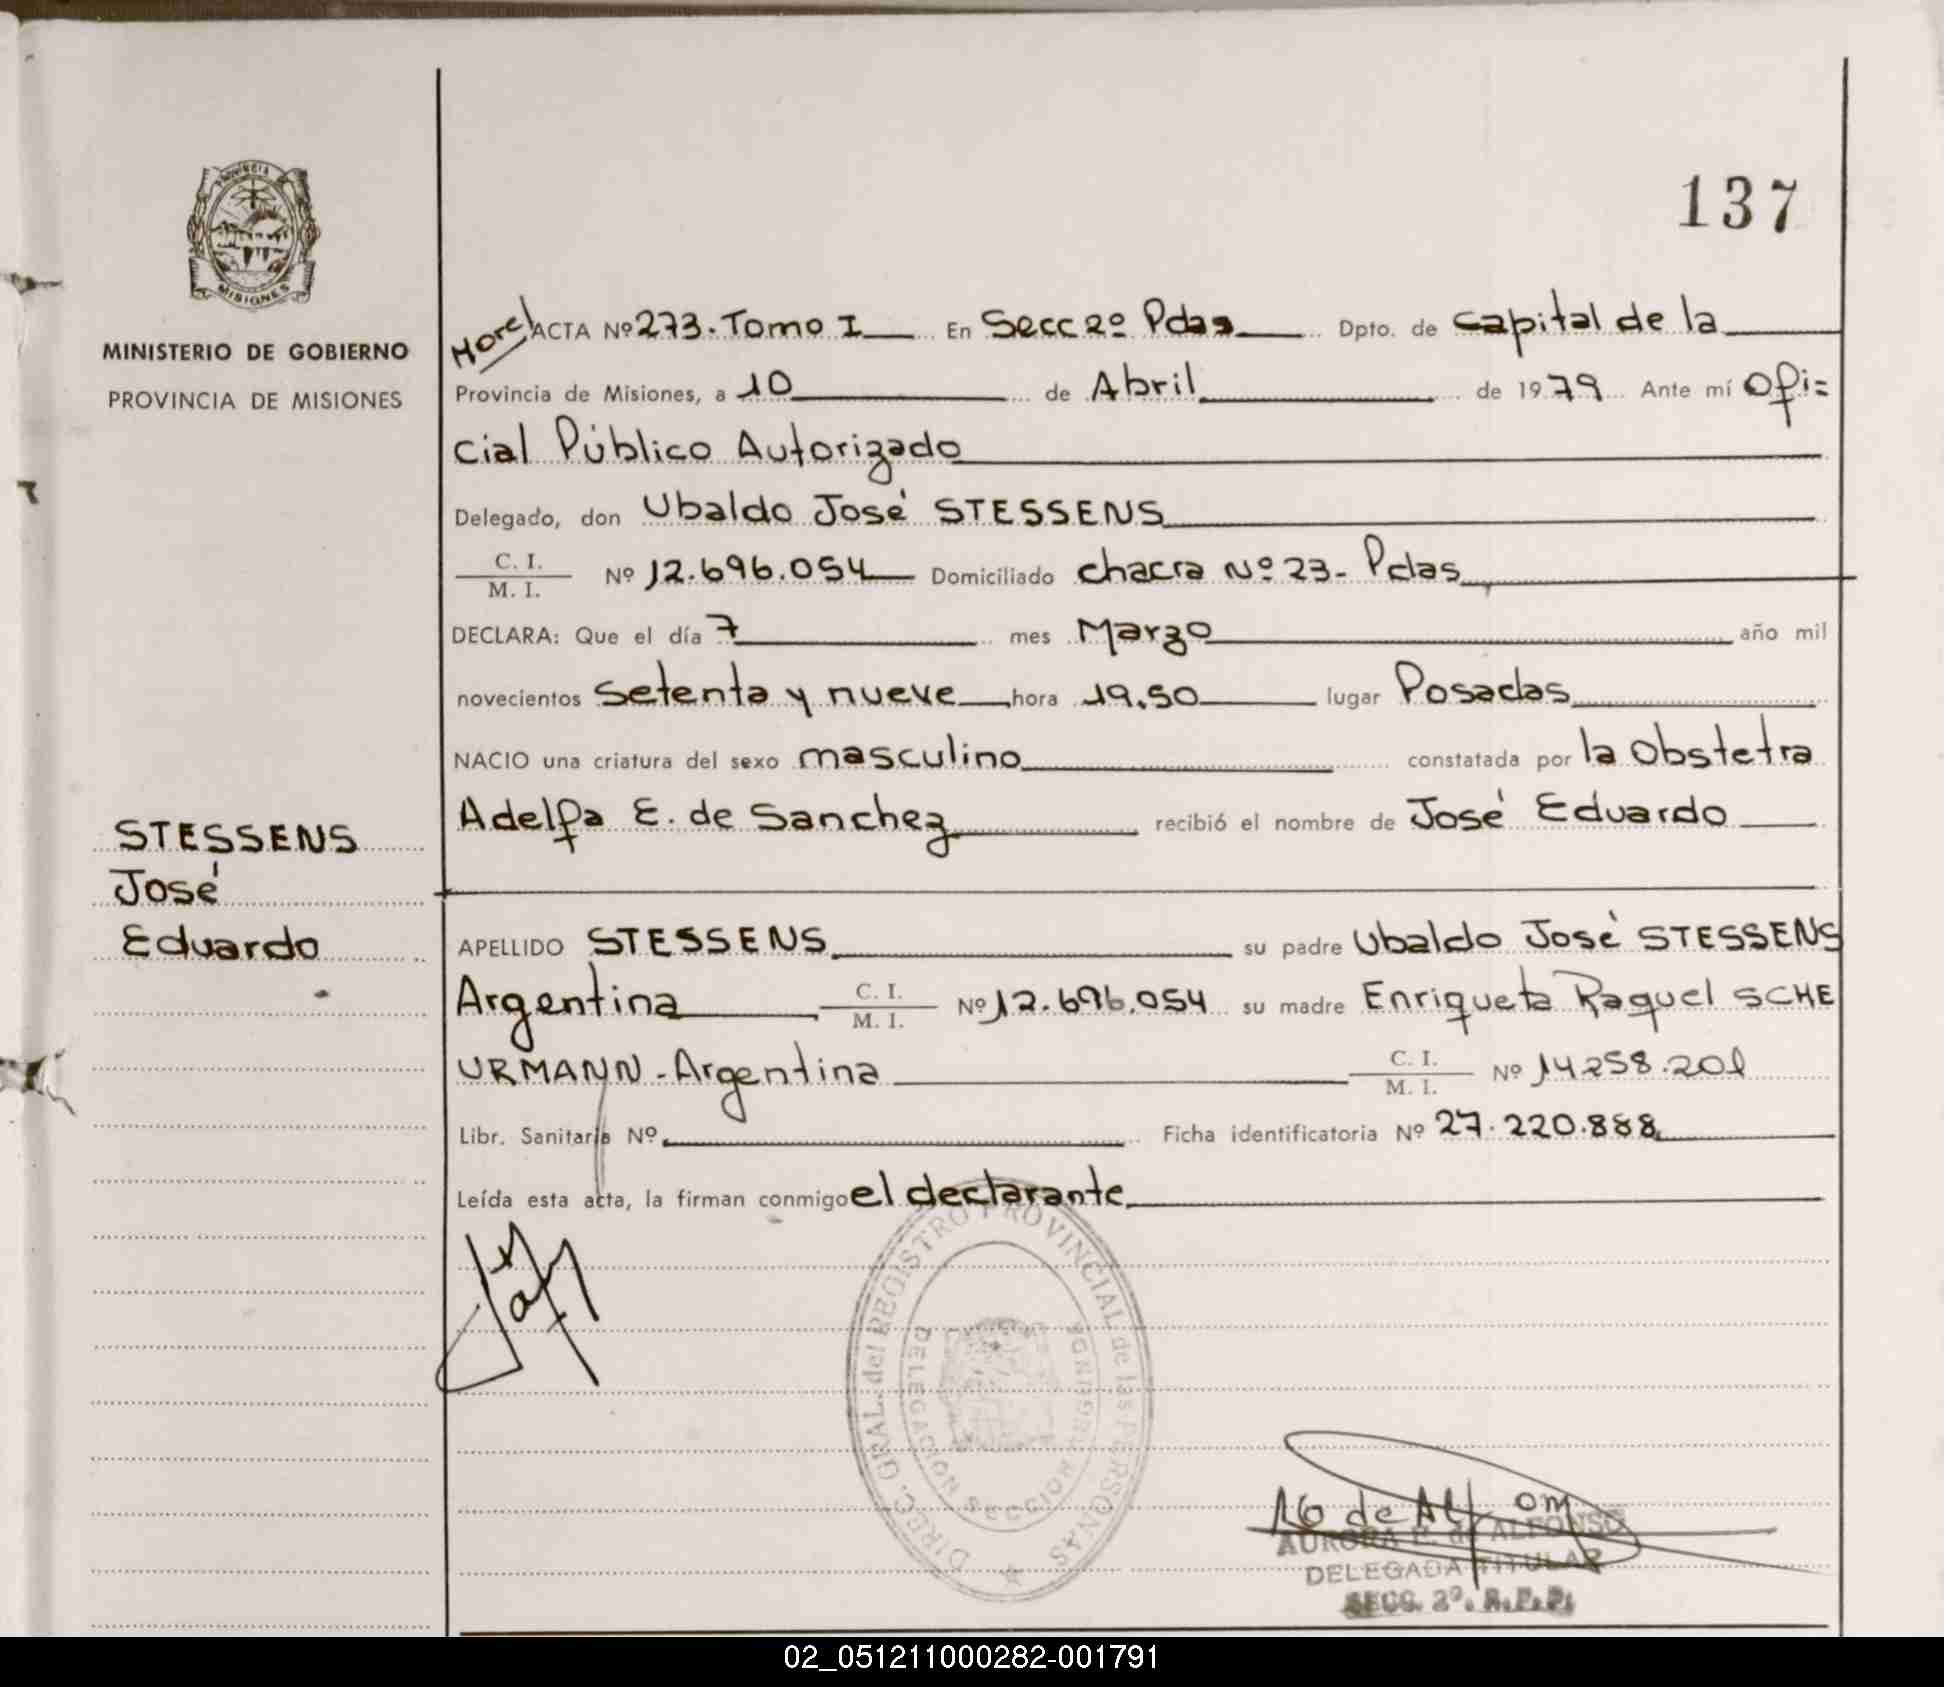 137
PROVINCIA
MISIONES
MINISTERIO DE GOBIERNO
PROVINCIA DE MISIONES
ACTA Nº 273. Tomo I En Secc 2º Pdas Dpto. de Capital de la
Provincia de Misiones, a 10 de Abril de 1979 Ante mí Ofi=
cial Público Autorizado
Delegado, don Ubaldo José STESSENS
C. I.
M. I. Nº 12.696.054 Domiciliado chacra Nº 23- Pdas
DECLARA: Que el día 7 mes Marzo año mil
novecientos Setenta y nueve hora 19,50 lugar Posadas
NACIO una criatura del sexo masculino constatada por la Obstetra
Adelfa E. de Sanchez recibió el nombre de José Eduardo
STESSENS
José
Eduardo
APELLIDO STESSENS su padre Ubaldo José STESSENS
Argentina C. I.
M. I. Nº 12.696.054 su madre Enriqueta Raquel SCHE
URMANN - Argentina C. I.
M. I. Nº 14258.201
Libr. Sanitaria Nº Ficha identificatoria Nº 27.220.888
Leída esta acta, la firman conmigo el declarante
DIREC. GRAL. del REGISTRO PROVINCIAL de las PERSONAS
DELEGACION SECCION SEGUNDA
AURORA E. de ALFONSO
DELEGADA TITULAR
SECC. 2º. R.P.P.
02_051211000282-001791